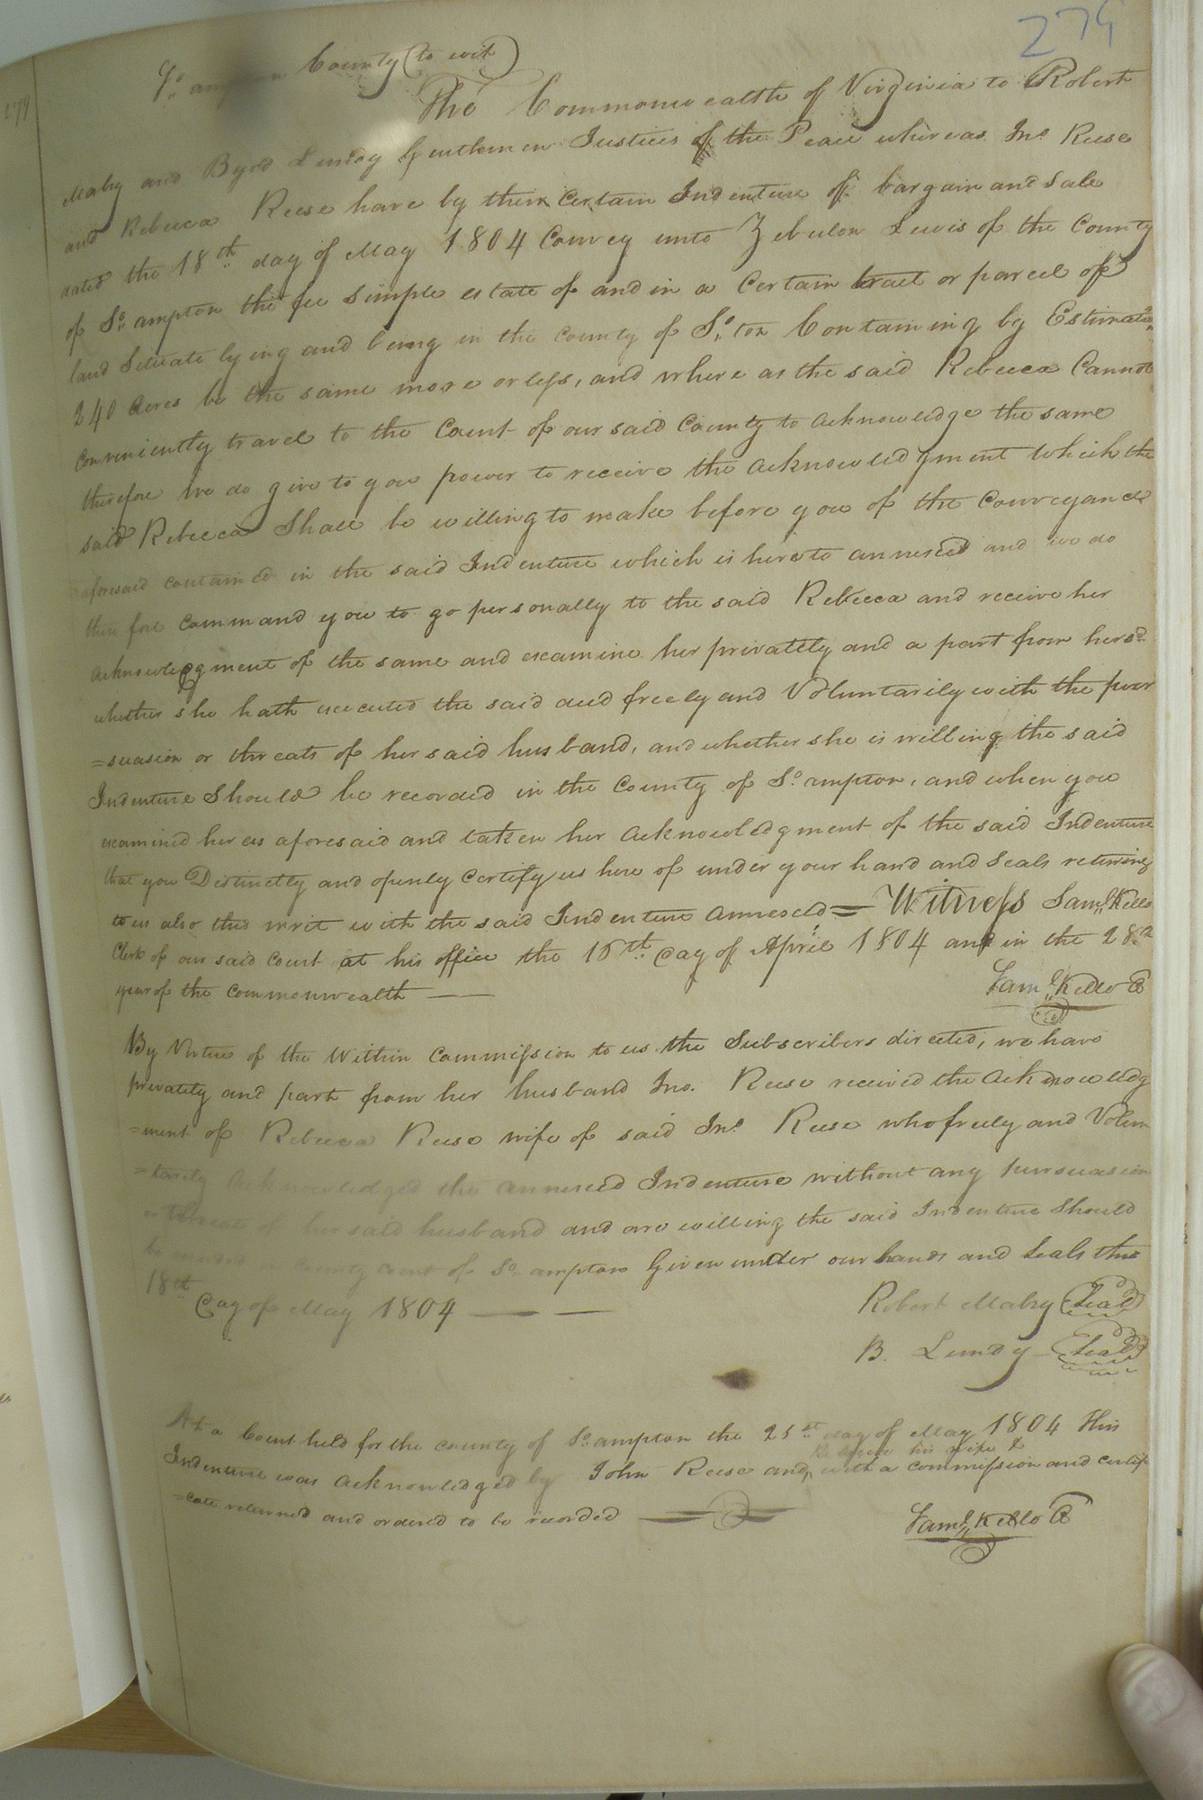 279
279
So. ampton County (to wit)
The Commonwealth of Virginia to Robert
Mabry and Byrd Lundy Gentlemen Justices of the Peace whereas Jno Reese
and Rebecca Reese have by their certain Indenture of bargain and Sale
dated the 18th day of May 1804 Convey unto Zebulon Lewis of the County
of So. ampton the fee simple estate of and in a Certain tract or parcel of
land Situate lying and being in the County of So. ton Containing by Estimation
240 Acres be the same more or less, and where as the said Rebecca Cannot
conveniently travel to the Court of our said County to acknowledge the same
therefore we do give to you power to receive the acknowledgment which the
said Rebecca Shall be willing to make before you of the Conveyance
aforesaid contained in the said Indenture which is hereto annexed and we do
there fore command you to go personally to the said Rebecca and receive her
acknowledgment of the same and examine her privately and a part from her sd.
whether she hath executed the said deed freely and Voluntarily with the per
=suasion or threats of her said husband, and whether she is willing the said
Indenture Should be recorded in the County of So. ampton, and when you
examined her as aforesaid and taken her acknowledgment of the said Indenture
that you Distinctly and openly certify us here of under your hand and Seals returning
to us also this writ with the said Indenture annexed = Witness Saml. Kello
Clerk of our said Court at his office the 16th Day of April 1804 and in the 28th
year of the Commonwealth
Saml. Kello C
By Virtue of the Within Commission to us the Subscribers directed, we have
privately and part from her husband Jno. Reese received the acknowledg
=ment of Rebecca Reese wife of said Jno Reese who freely and Volun
=tarily acknowledged the annexed Indenture without any persuasion
or threats of her said husband and are willing the said Indenture Should
be County Court of So. ampton Given under our hands and Seals this
18th Day of May 1804
Robert Mabry Seal
B. Lundy Seal
At a Court held for the County of So. ampton the 21st day of May 1804 This
Indenture was acknowledged by John Reese and Rebecca his wife & with a commission and certifi
=cate returned and ordered to be recorded
Saml. Kello C